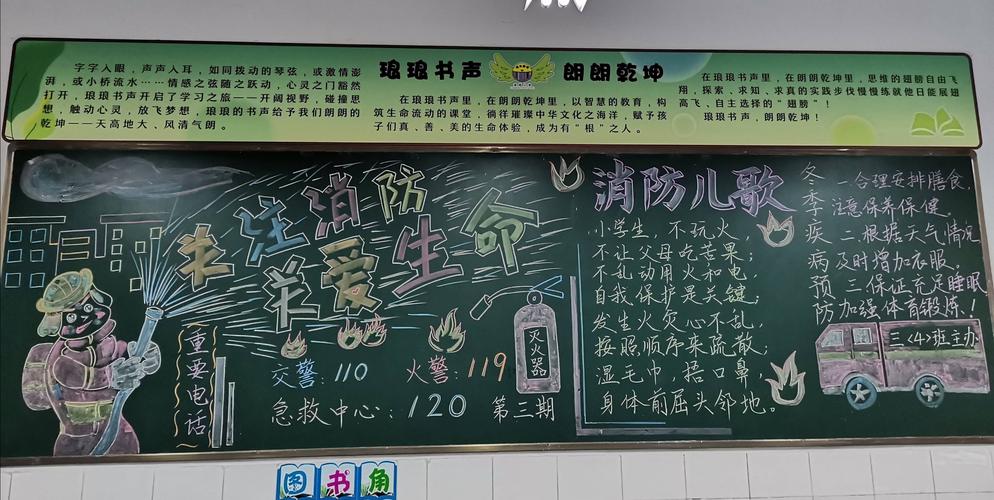 琅琅书声 朗朗乾坤
字字入眼，声声入耳，如同拨动的琴弦，或激情澎
湃，或小桥流水……情感之弦随之跃动，心灵之门豁然
打开，琅琅书声开启了学习之旅——开阔视野，碰撞思
想，触动心灵，放飞梦想，琅琅的书声给予我们朗朗的
乾坤——天高地大、风清气朗。
在琅琅书声里，在朗朗乾坤里，以智慧的教育，构
筑生命流动的课堂，徜徉璀璨中华文化之海洋，赋予孩
子们真、善、美的生命体验，成为有“根”之人。
在琅琅书声里，在朗朗乾坤里，思维的翅膀自由飞
翔，探索、求知、求真的实践步伐慢慢练就他日能展翅
高飞、自主选择的“翅膀”！
琅琅书声，朗朗乾坤！
关注消防
关爱生命
重要电话
交警：110
火警：119
急救中心：120
第三期
灭火器
消防儿歌
小学生，不玩火，
不让父母吃苦果；
不乱动用火和电，
自我保护是关键；
发生火灾心不乱，
按照顺序来疏散；
湿毛巾，捂口鼻，
身体前屈头邻地。
冬季疾病预防
一.合理安排膳食，
注意保养保健。
二.根据天气情况
及时增加衣服。
三.保证充足睡眠
加强体育锻炼！
三〈4〉班主办
图书角